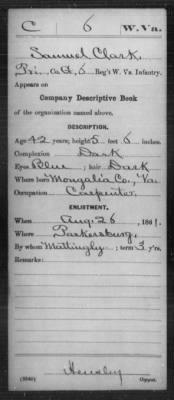 C 6 W. Va.
Samuel Clark,
Pri., Co. G, 6 Reg't W. Va. Infantry.
Appears on
Company Descriptive Book
of the organization named above.
DESCRIPTION.
Age 42 years; height 5 feet 6 inches.
Complexion Dark
Eyes Blue; hair Dark
Where born Mongalia Co., Va.
Occupation Carpenter.
ENLISTMENT.
When Aug. 26, 1861.
Where Parkersburg,
By whom Mattingly; term 3 y'rs.
Remarks:
Hensley
Copyist.